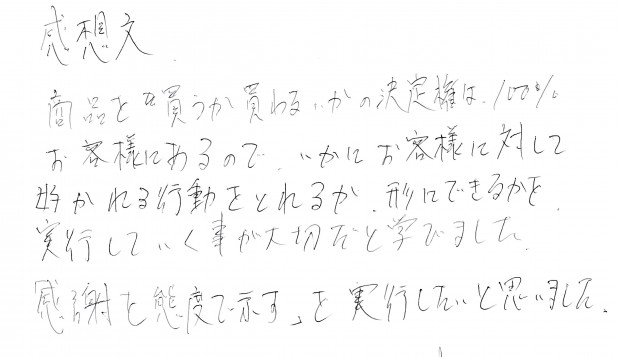 感想文
商品を買うか買わないかの決定権は、100%
お客様にあるので、いかにお客様に対して
好かれる行動をとれるか、形にできるかを
実行していく事が大切だと学びました。
「感謝を態度で示す」を実行したいと思いました。